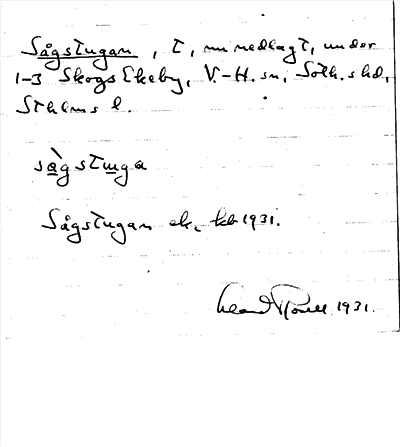 Sågstugan, t, nu nedlagt, under
1–3 Skogs Ekeby, V.-H. sn, Soth. shd,
Sthlms l.
sàgstuga
Sågstugan ek. kb 1931.
1931.